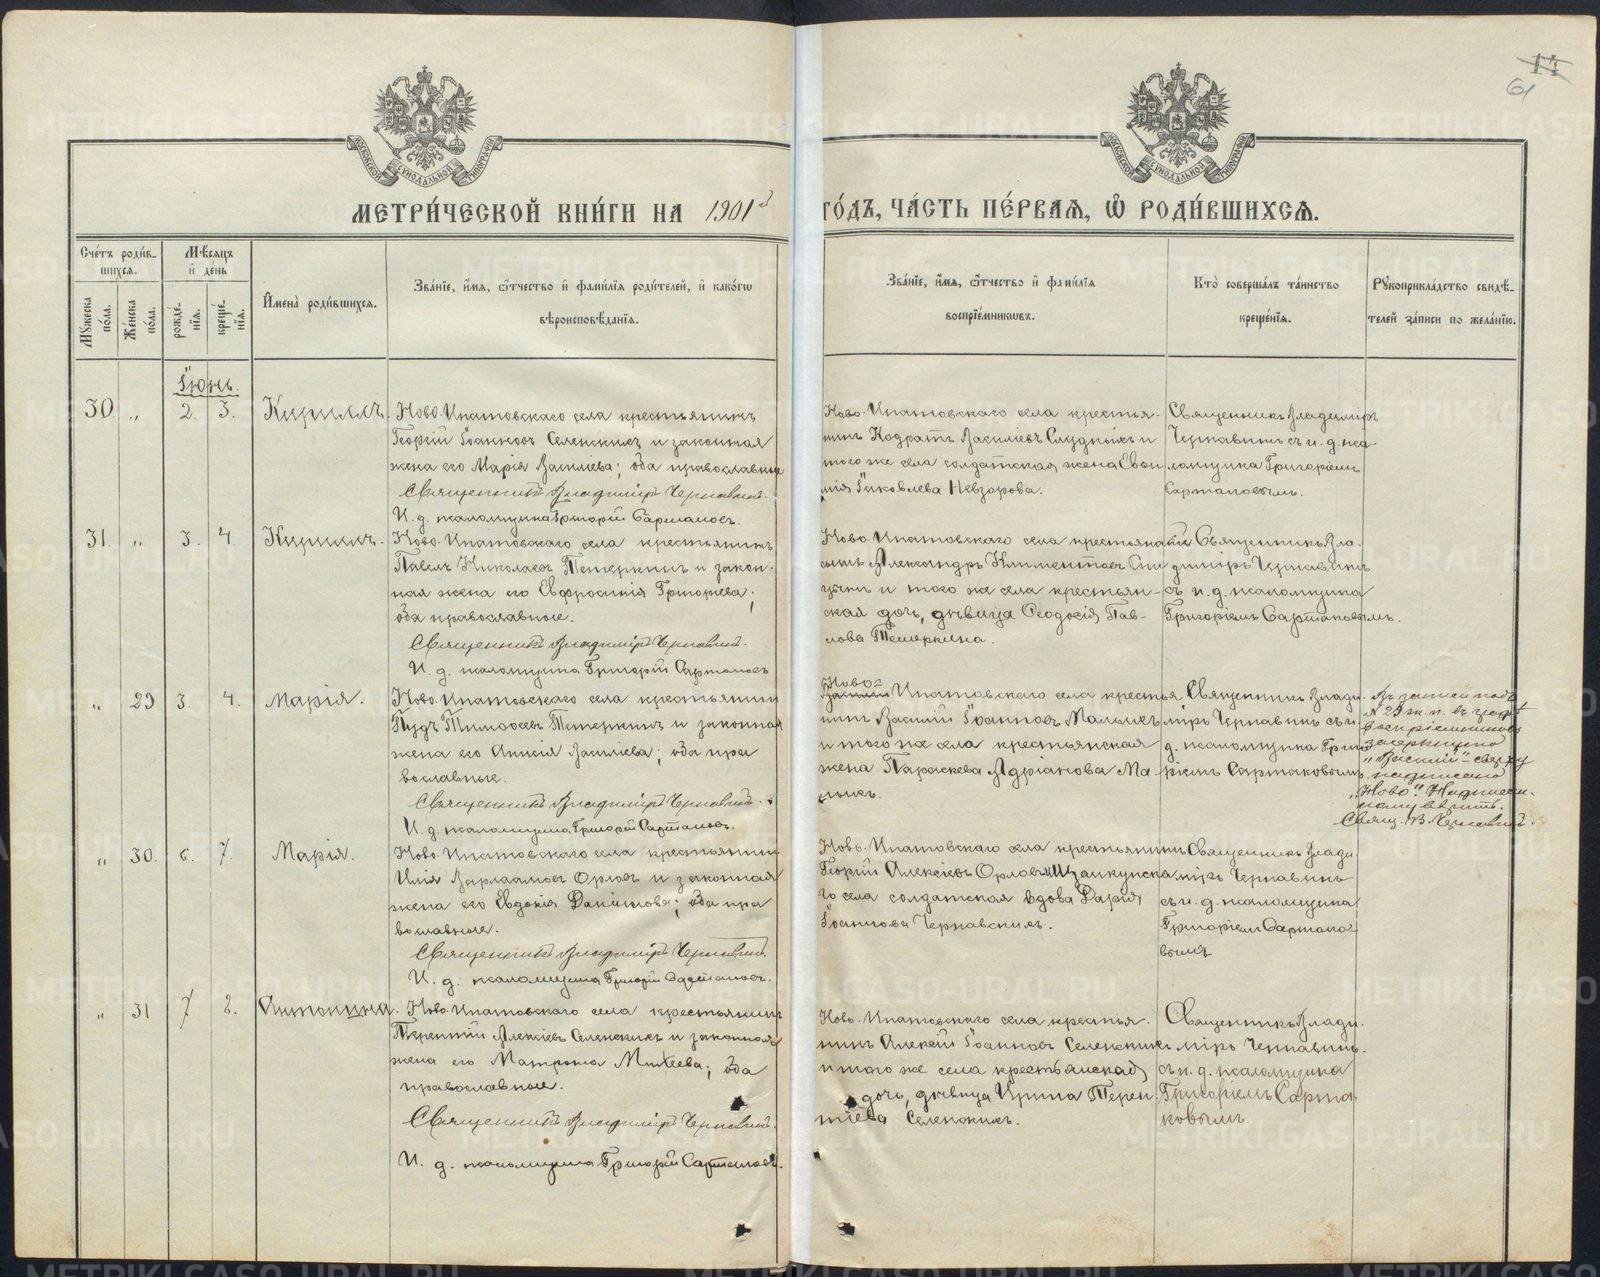 11
61
МОСКОВСКОЙ СѴНОДАЛЬНОЙ ТИПОГРАФІИ
МОСКОВСКОЙ СѴНОДАЛЬНОЙ ТИПОГРАФІИ
МЕТРИ́ЧЕСКОЙ КНИ́ГИ НА 1901й ГО́ДЪ, ЧА́СТЬ ПЕ́РВАѦ, Ѡ҆ РОДИ́ВШИХСѦ.
Сче́тъ роди́вшихсѧ.
Мѹжеска по́ла.
Же́нска по́ла.
Мѣ́сѧцъ и҆ де́нь
рожде́нїѧ.
креще́нїѧ.
И҆мена̀ роди́вшихсѧ.
Зва́нїе, и҆́мѧ, ѻ҆́тчество и҆ фами́лїѧ роди́телей, и҆ како́гѡ
вѣроисповѣ́данїѧ.
Зва́нїе, и҆́мѧ, ѻ҆́тчество и҆ фами́лїѧ
воспрїе́мникѡвъ.
Кто̀ соверша́лъ та́инство
креще́нїѧ.
Рѹкоприкла́дство свидѣ́-
телей за́писи по жела́нїю.
Іюнь.
30 „ 2. 3. Кириллъ.
Ново-Ипатовскаго села крестьянинъ
Георгій Іоанновъ Селенскихъ и законная
жена его Марія Васильева; оба православные
Священникъ Владиміръ Чернавинъ.
И. д. псаломщика Григорій Сартаковъ.
Ново-Ипатовскаго села крестья-
нинъ Кодратъ Васильевъ Слудныхъ и
того же села солдатская жена Евѳи
мія Іаковлева Невзорова.
Священникъ Владиміръ
Чернавинъ съ и. д. пса-
ломщика Григоріемъ
Сартаковымъ.
31. „ 3. 4. Кириллъ.
Ново-Ипатовскаго села крестьянинъ
Павелъ Николаевъ Тетеркинъ и закон-
ная жена его Евфросинія Григорьева;
оба православные.
Священникъ Владиміръ Чернавинъ.
И. д. псаломщика Григорій Сартаковъ
Ново-Ипатовскаго села крестьянскій
сынъ Александръ Климентовъ
и того же села крестьян-
ская дочь, дѣвица Ѳеодосія Пав-
лова Тетеркина.
Священникъ Вла-
диміръ Чернавинъ
съ и. д. псаломщика
Григоріемъ Сартаковымъ.
„ 29 3. 4. Марія.
Ново-Ипатовскаго села крестьянинъ
Тимоѳеевъ Тетеркинъ и законная
жена его Анисія Васильева; оба пра
вославные.
Священникъ Владиміръ Чернавинъ.
И. д. псаломщика Григорій Сартаковъ.
Ново-
Василій Ипатовскаго села крестья
нинъ Василій Іоанновъ Малыхъ
и того же села крестьянская
жена Параскева Адріанова Ма-
лыхъ.
Священникъ Влади-
міръ Чернавинъ съ и.
д. псаломщика Григо
ріемъ Сартаковымъ.
Въ записи подъ
№ 29 ж. п. въ графѣ
воспріемниковъ
зачеркнуто
„Василій" – сверху
надписано
„Ново". Надписан-
ному вѣрить.
Свящ. В. Чернавинъ.
„ 30. 6. 7. Марія.
Ново-Ипатовскаго села крестьянинъ
Илія Варлаамовъ Орловъ и законная
жена его Евдокія Данилова; оба пра
вославные.
Священникъ Владиміръ Чернавинъ.
И. д. псаломщика Григорій Сартаковъ.
Ново-Ипатовскаго села крестьянинъ
Георгій Алексіевъ Орловъ и Щелкунска
го села солдатская вдова Дарія
Іоаннова Чернавскихъ.
Священникъ Влади-
міръ Чернавинъ
съ и. д. псаломщика
Григоріемъ Сартако-
вымъ
„ 31 7 8. Антонина.
Ново-Ипатовскаго села крестьянинъ
Терентій Алексіевъ Селенскихъ и законная
жена его Матрона Михеева; оба
православные.
Священникъ Владиміръ Чернавинъ.
И. д. псаломщика Григорій Сартаковъ.
Ново-Ипатовскаго села крестья-
нинъ Алексій Іоанновъ Селенскихъ
и того же села крестьянская
дочь, дѣвица Ирина Терен
тіева Селенскихъ.
Священникъ Влади-
міръ Чернавинъ.
съ и. д. псаломщика
Григоріемъ Сарта
ковымъ.
METRIKI.GASO-URAL.RU